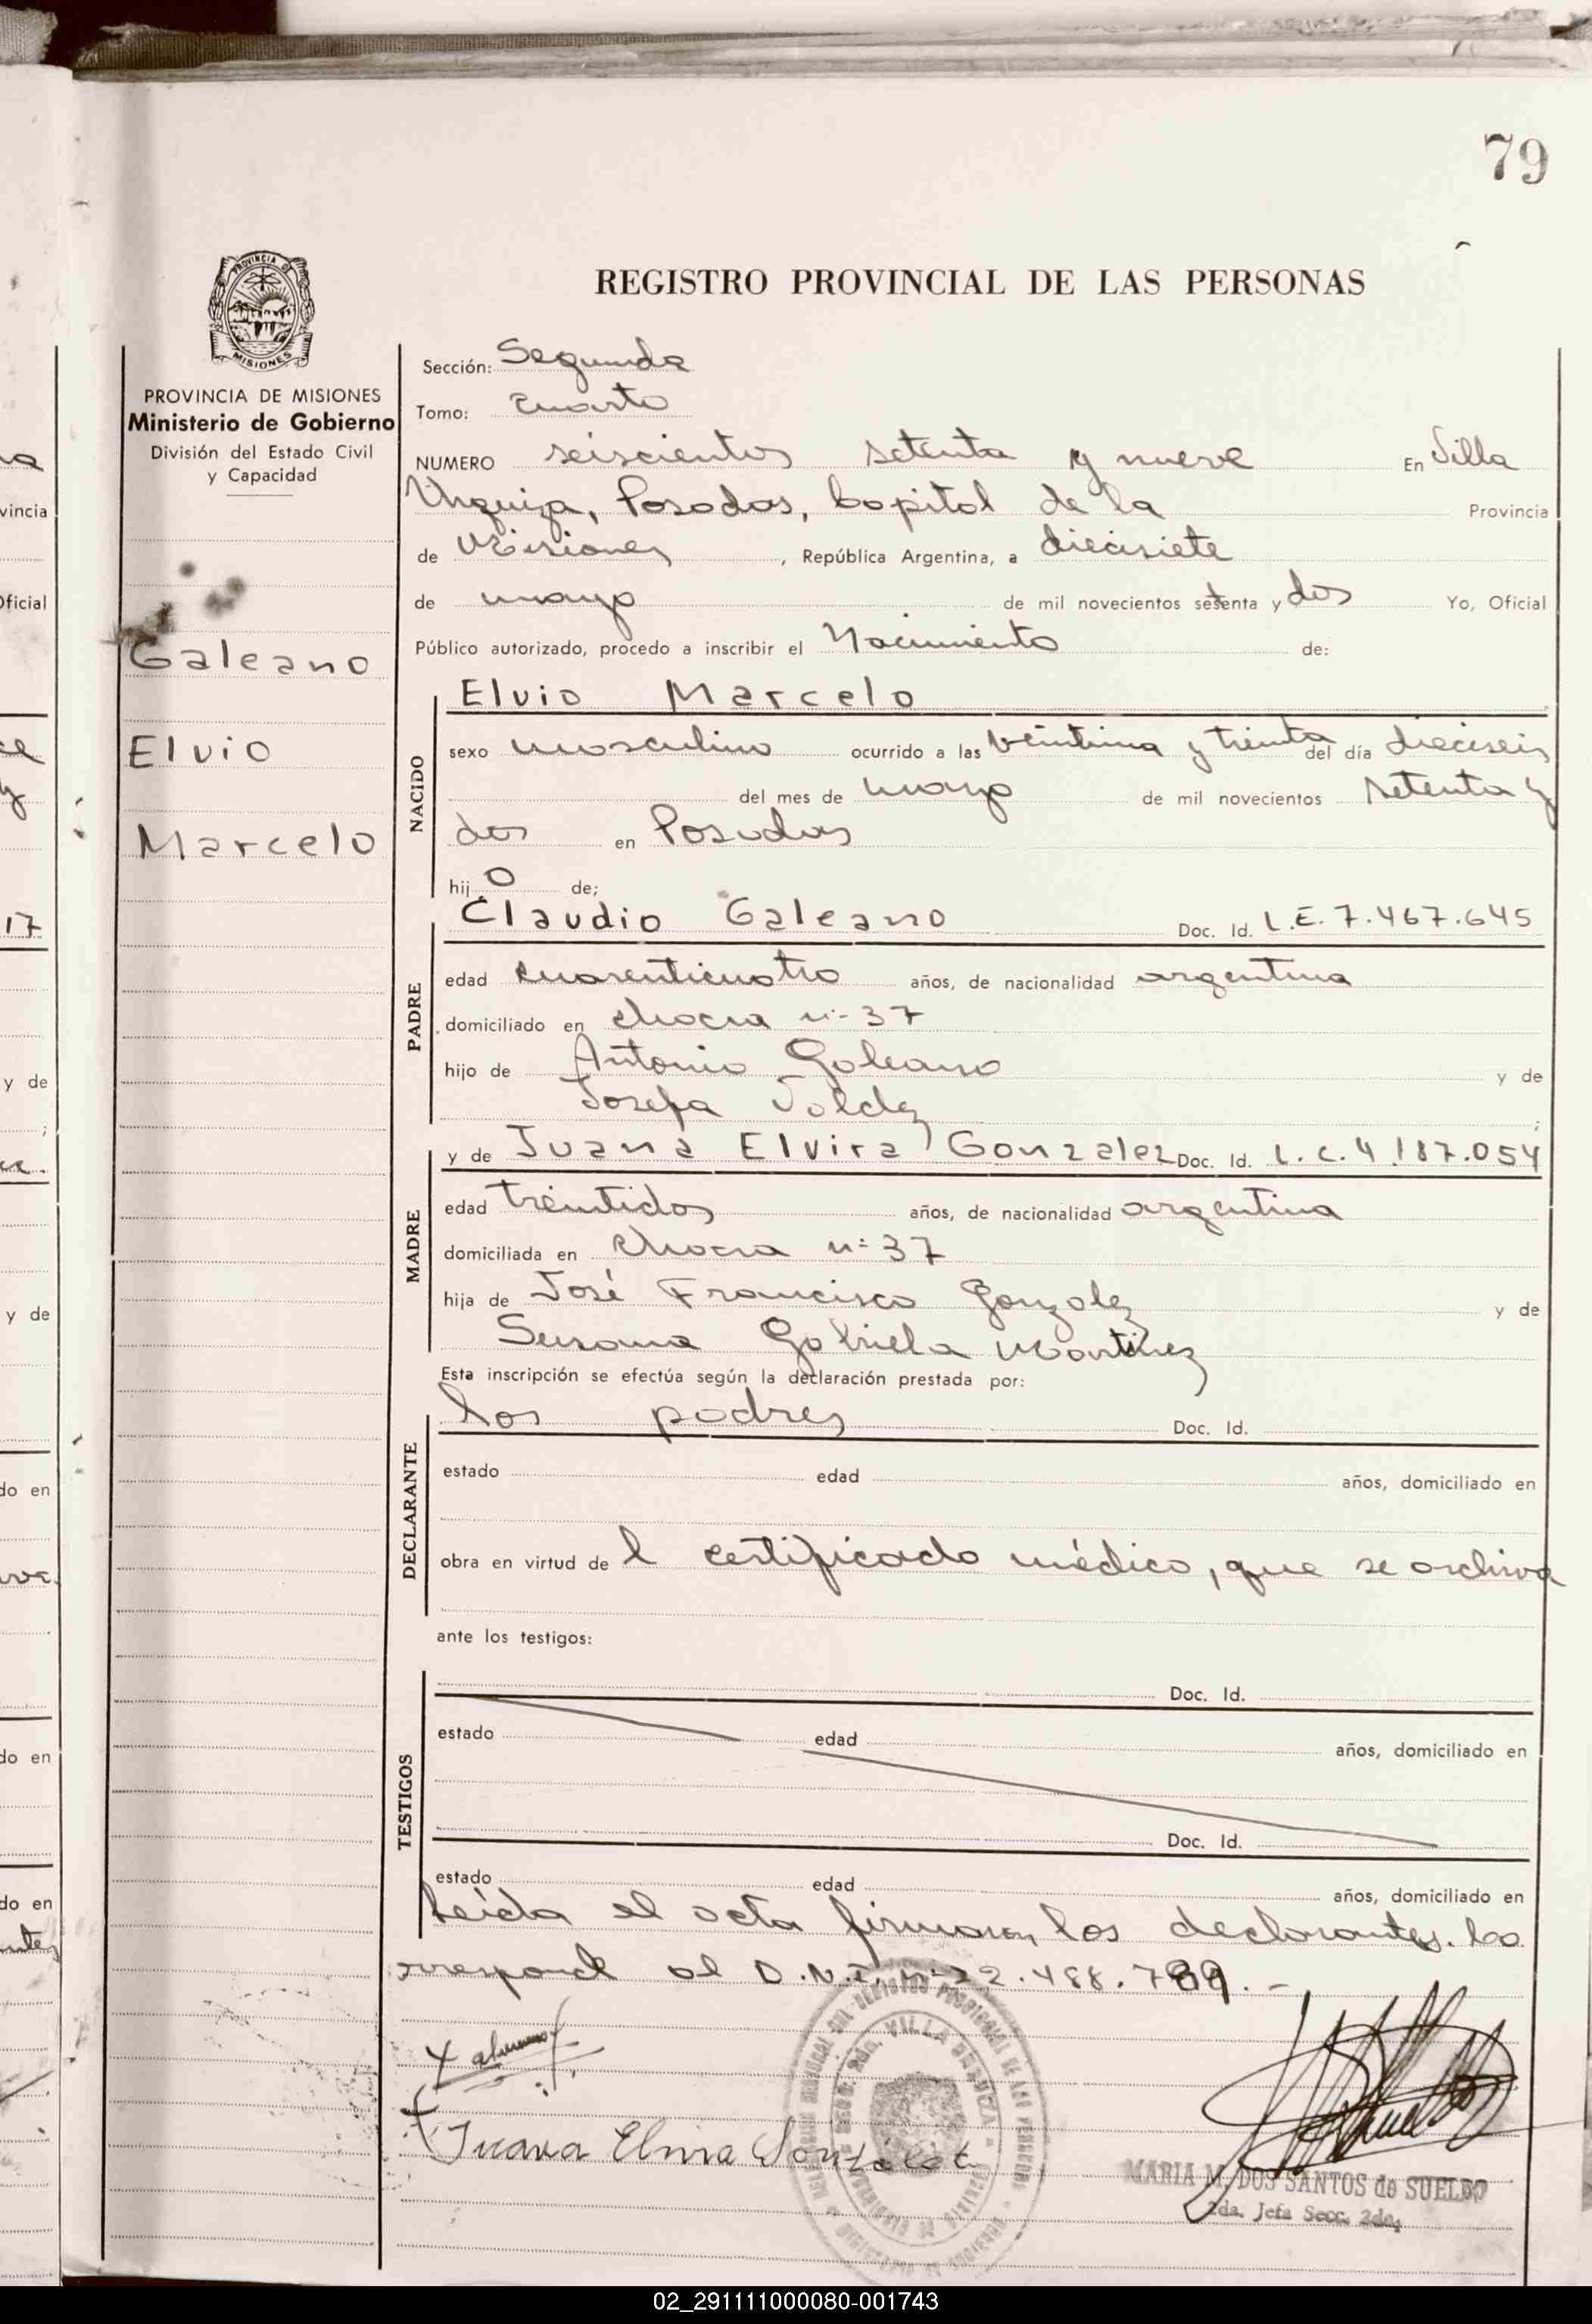 79
REGISTRO PROVINCIAL DE LAS PERSONAS
PROVINCIA DE
MISIONES
PROVINCIA DE MISIONES
Ministerio de Gobierno
División del Estado Civil
y Capacidad
Galeano
Elvio
Marcelo
Sección: Segunda
Tomo: Cuarto
NUMERO seiscientos setenta y nueve En Villa
Urquiza, Posadas, Capital de la Provincia
de Misiones, República Argentina, a diecisiete
de mayo de mil novecientos setenta y dos Yo, Oficial
Público autorizado, procedo a inscribir el Nacimiento de:
NACIDO
Elvio Marcelo
sexo masculino ocurrido a las veintiuna y treinta del día dieciseis
del mes de mayo de mil novecientos setenta y
dos en Posadas
hijo de;
PADRE
Claudio Galeano Doc. Id. L.E. 7.467.645
edad cuarenticuatro años, de nacionalidad argentina
domiciliado en chacra nº 37
hijo de Antonio Galeano y de
Josefa Valdez;
MADRE
y de Juana Elvira Gonzalez Doc. Id. L.C. 4.187.054
edad treintidos años, de nacionalidad argentina
domiciliada en chacra nº 37
hija de José Francisco Gonzalez y de
Susana Gabriela Martinez
Esta inscripción se efectúa según la declaración prestada por:
DECLARANTE
los padres Doc. Id.
estado edad años, domiciliado en
obra en virtud del certificado médico, que se archiva
ante los testigos:
TESTIGOS
Doc. Id.
estado edad años, domiciliado en
Doc. Id.
estado edad años, domiciliado en
Leída el acta firman los declarantes. Co
rresponde al D.N.I. nº 22.488.789.-
Juana Elvira Gonzalez
VILLA URQUIZA
MARIA M. DOS SANTOS de SUELDO
2da. Jefa Secc. 2da.
02_291111000080-001743